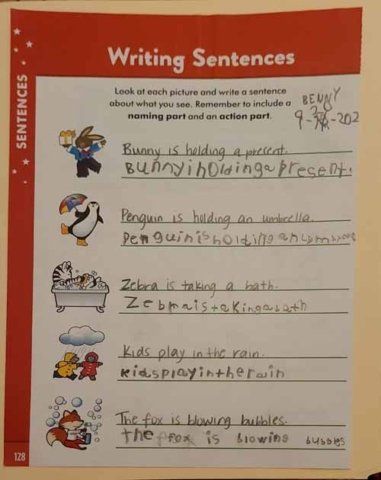 SENTENCES
Writing Sentences
Look at each picture and write a sentence
about what you see. Remember to include a
naming part and an action part.
BENNY
Bunny is holding a present.
Bunnyiholdingapresent.
Penguin is holding an umbrella.
Penguinisholdingan
Zebra is taking a bath.
Zebraistakingabath
Kids play in the rain.
kidsplayintherain
The fox is blowing bubbles.
the fox is blowing bubbles
128